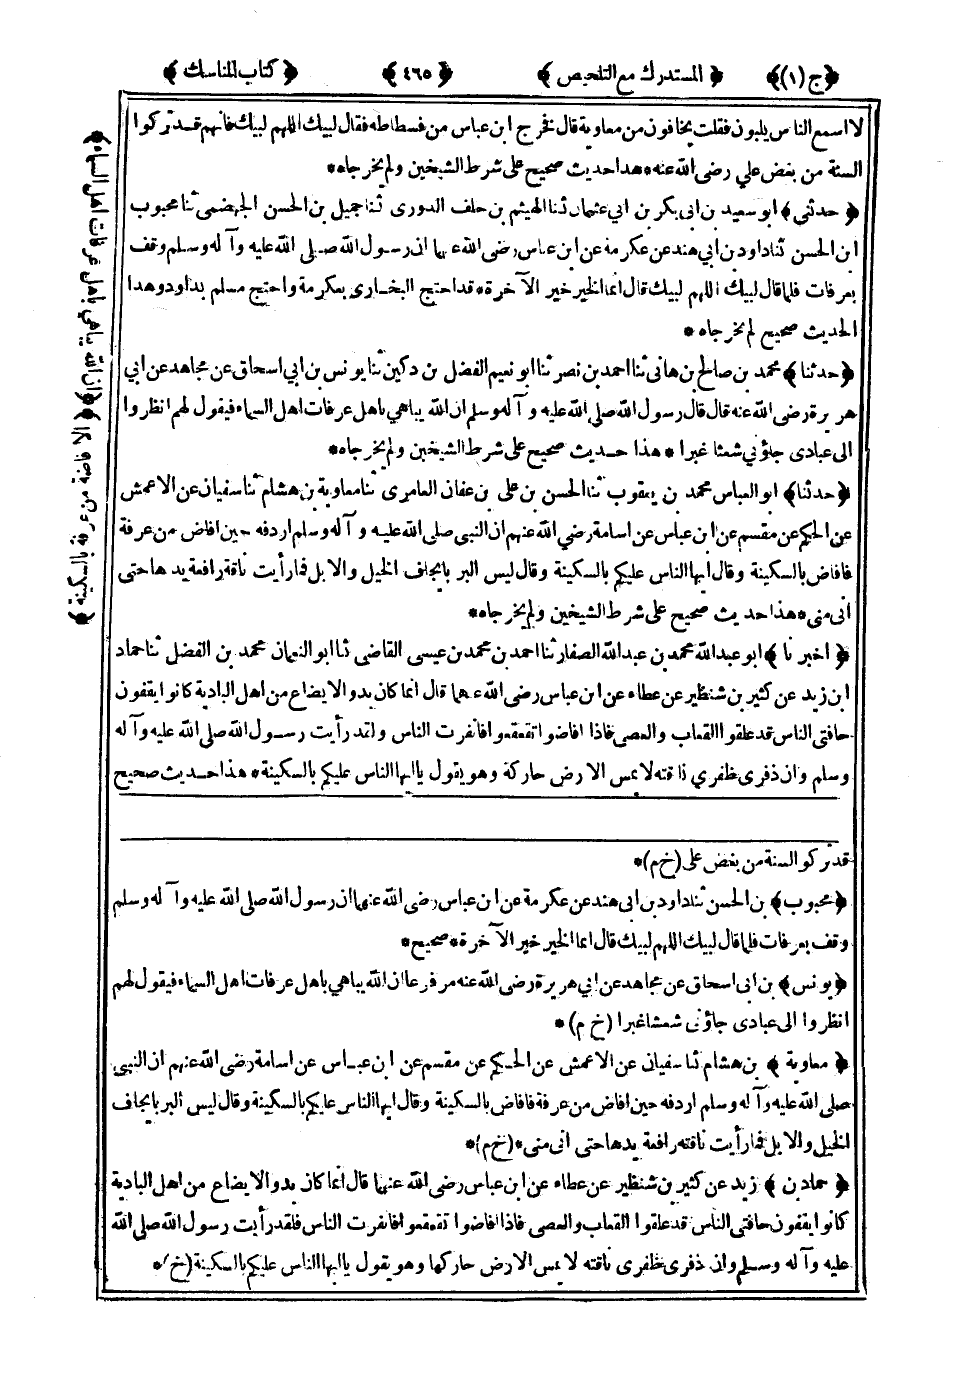 ﴿ج (١)﴾ ﴿المستدرك مع التلخيص﴾ ﴿٤٦٥﴾ ﴿كتاب المناسك﴾
لا اسمع الناس يلبون فقلت يخافون من معاوية قال فخرج ابن عباس من فسطاطه فقال لبيك اللهم لبيك فانهم قد تركوا
السنة من بغض علي رضى الله عنه * هذا حديث صحيح على شرط الشيخين ولم يخرجاه *
﴿حدثني﴾ ابو سعيد بن ابى بكر بن ابي عثمان ثنا الهيثم بن خلف الدورى ثنا جميل بن الحسن الجهضمى ثنا محبوب
ابن الحسن ثنا داود بن ابي هند عن عكرمة عن ابن عباس رضى الله عنهما ان رسول الله صلى الله عليه وآله وسلم وقف
بعرفات فلما قال لبيك اللهم لبيك قال انما الخير خير الآخرة * قد احتج البخارى بعكرمة واحتج مسلم بداود وهذا
الحديث صحيح لم يخرجاه *
﴿حدثنا﴾ محمد بن صالح بن هانى ثنا احمد بن نصر ثنا ابو نعيم الفضل بن دكين ثنا يونس بن ابي اسحاق عن مجاهد عن ابي
هريرة رضى الله عنه قال قال رسول الله صلى الله عليه وآله وسلم ان الله يباهي باهل عرفات اهل السماء فيقول لهم انظروا
الى عبادى جاؤني شعثا غبرا * هذا حديث صحيح على شرط الشيخين ولم يخرجاه *
﴿حدثنا﴾ ابو العباس محمد بن يعقوب ثنا الحسن بن على بن عفان العامرى ثنا معاوية بن هشام ثنا سفيان عن الاعمش
عن الحكم عن مقسم عن ابن عباس عن اسامة رضي الله عنهم ان النبى صلى الله عليه وآله وسلم اردفه حين افاض من عرفة
فافاض بالسكينة وقال ايها الناس عليكم بالسكينة وقال ليس البر بايجاف الخيل والابل فما رأيت ناقة رافعة يدها حتى
اتى منى * هذا حديث صحيح على شرط الشيخين ولم يخرجاه *
﴿اخبرنا﴾ ابو عبد الله محمد بن عبد الله الصفار ثنا احمد بن محمد بن عيسى القاضى ثنا ابو النعمان محمد بن الفضل ثنا حماد
ابن زيد عن كثير بن شنظير عن عطاء عن ابن عباس رضى الله عنهما قال انما كان بدو الايضاع من اهل البادية كانوا يقفون
حافتى الناس قد علقوا القعاب والعصى فاذا افاضوا تقعقعوا فانفرت الناس ولقد رأيت رسول الله صلى الله عليه وآله
وسلم وان ذفرى ظفري ناقته لا يمس الارض حاركة وهو يقول يا ايها الناس عليكم بالسكينة * هذا حديث صحيح
قد تركوا السنة من بغض على (خ م) *
﴿محبوب﴾ بن الحسن ثنا داود بن ابى هند عن عكرمة عن ابن عباس رضى الله عنهما ان رسول الله صلى الله عليه وآله وسلم
وقف بعرفات فلما قال لبيك اللهم لبيك قال انما الخير خير الآخرة * صحيح *
﴿يونس﴾ بن ابى اسحاق عن مجاهد عن ابي هريرة رضى الله عنه مرفوعا ان الله يباهي باهل عرفات اهل السماء فيقول لهم
انظروا الى عبادى جاؤنى شعثا غبرا (خ م) *
﴿معاوية﴾ بن هشام ثنا سفيان عن الاعمش عن الحكم عن مقسم عن ابن عباس عن اسامة رضى الله عنهم ان النبي
صلى الله عليه وآله وسلم اردفه حين افاض من عرفة فافاض بالسكينة وقال ايها الناس عليكم بالسكينة وقال ليس البر بايجاف
الخيل والابل فما رأيت ناقته رافعة يدها حتى اتى منى * (خ م) *
﴿حماد بن﴾ زيد عن كثير بن شنظير عن عطاء عن ابن عباس رضى الله عنهما قال انما كان بدو الايضاع من اهل البادية
كانوا يقفون حافتى الناس قد علقوا القعاب والعصى فاذا افاضوا تقعقعوا فانفرت الناس فلقد رأيت رسول الله صلى الله
عليه وآله وسلم وان ذفرى ظفرى ناقته لا يمس الارض حاركها وهو يقول يا ايها الناس عليكم بالسكينة (خ) *
﴿ان الله يباهي باهل عرفات اهل السماء﴾
﴿الافاضة من عرفة بالسكينة﴾